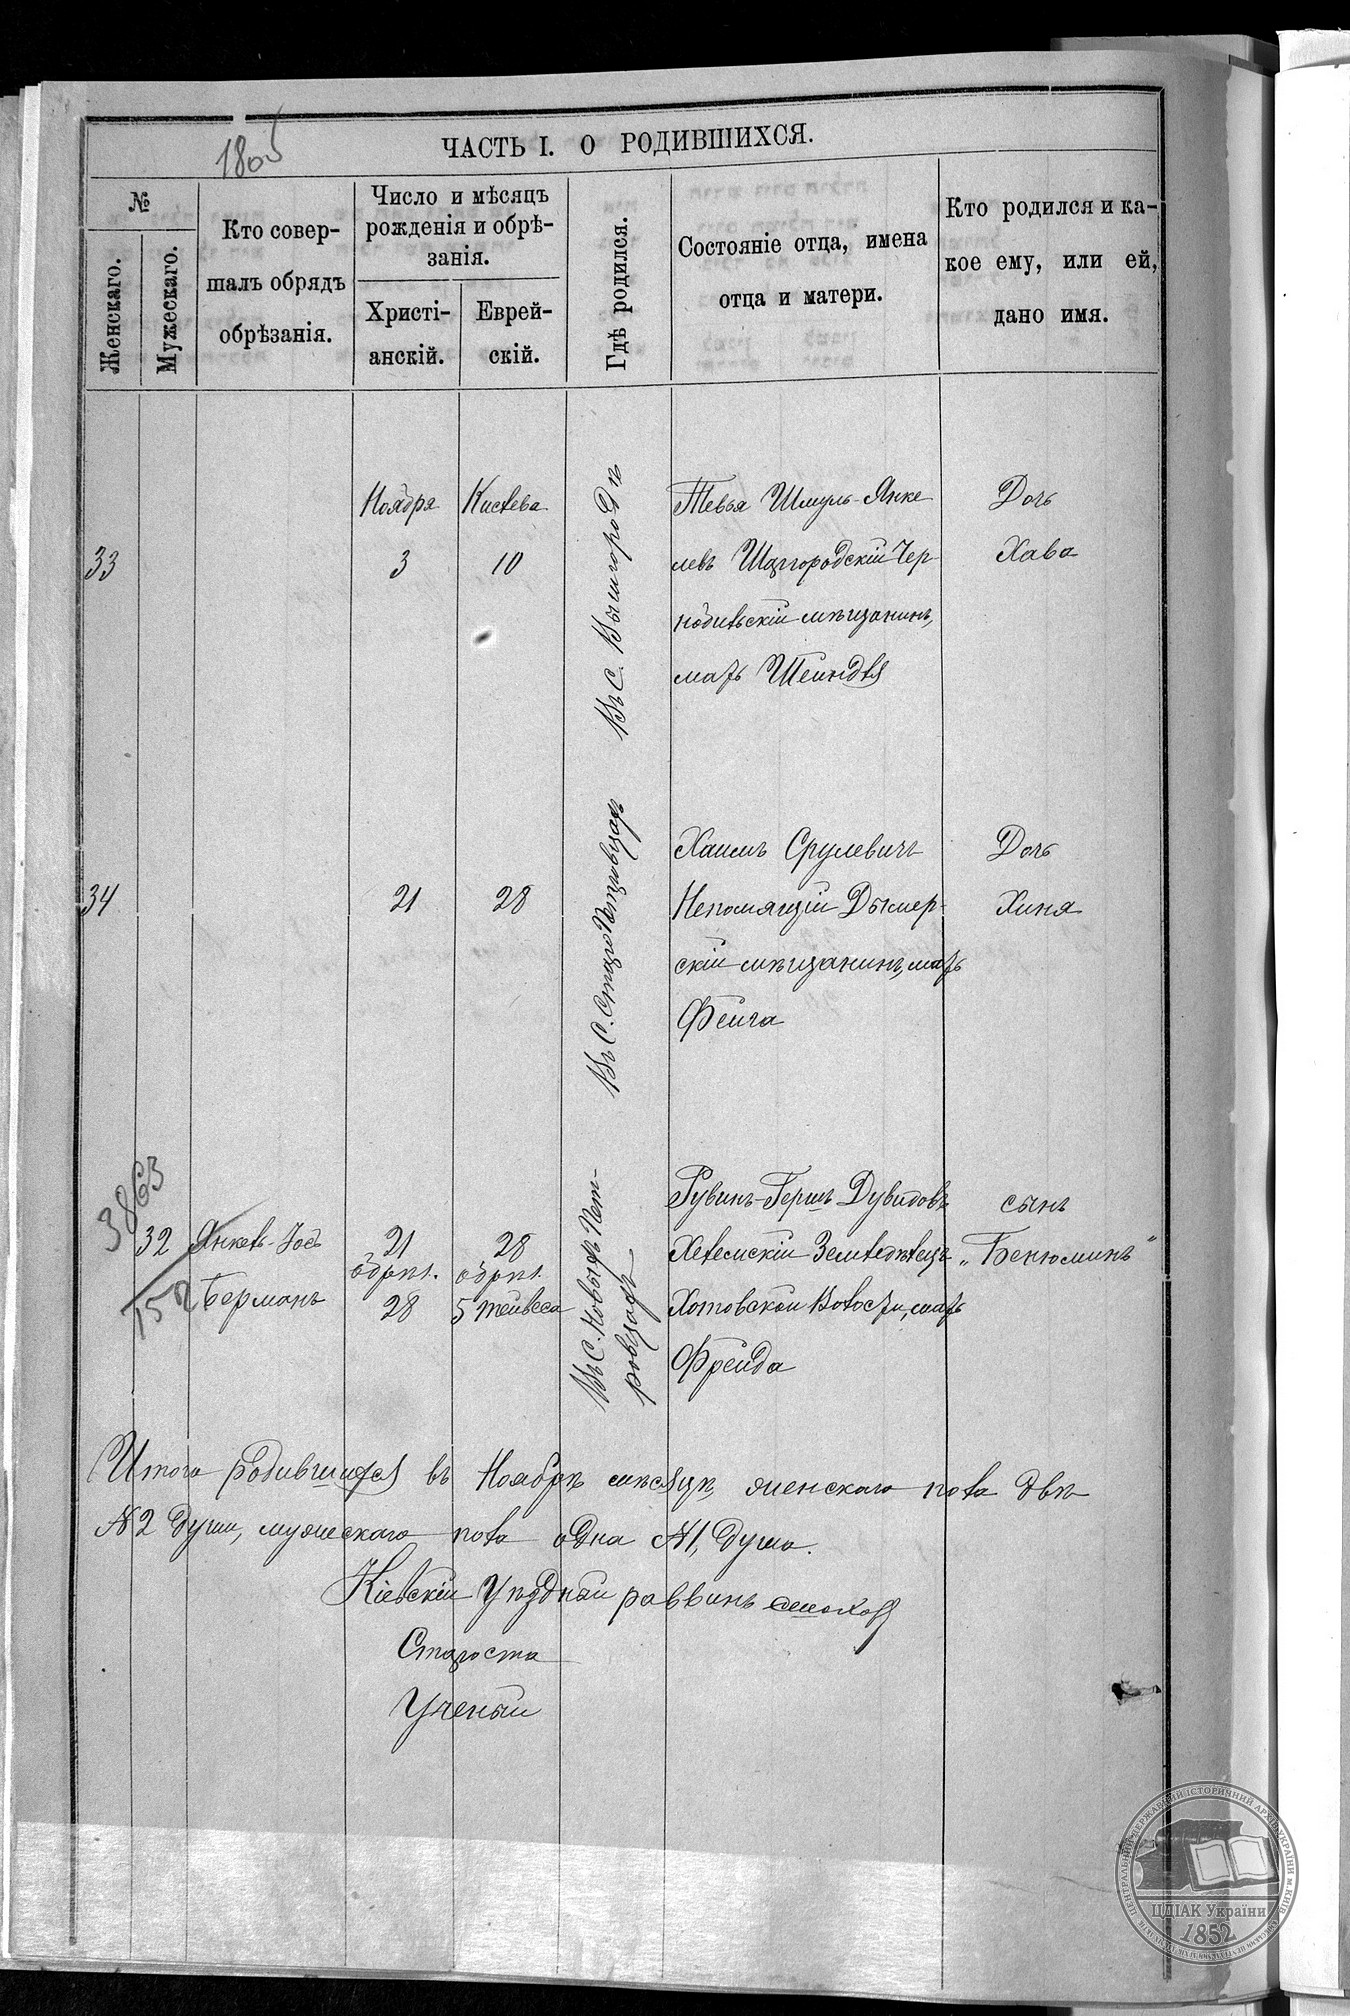 1805
ЧАСТЬ I. О РОДИВШИХСЯ.
№
Женскаго.
Мужескаго.
Кто совер-
шалъ обрядъ
обрѣзанія.
Число и мѣсяцъ
рожденія и обрѣ-
занія.
Христі-
анскій.
Еврей-
скій.
Гдѣ родился.
Состояніе отца, имена
отца и матери.
Кто родился и ка-
кое ему, или ей,
дано имя.
33
Ноября
3
Кислева
10
Въ С. Вышгородѣ
Тевья Шмуль-Янке
левъ Шаргородскій Чер-
нобильскій мѣщанинъ,
мать Шейндля
Дочь
Хава
34
21
28
Въ С. Старо Петровцахъ
Хаимъ Срулевичъ
Непомящій Дымер-
скій мѣщанинъ, мать
Фейга
Дочь
Хиня
3863
152
32
Янкель-Іось
Берманъ
21
обрѣз.
28
28
обрѣз.
5 Тейвеса
Въ С. Новыхъ Пет-
ровцахъ
Рувинъ-Гершъ Дувидовъ
Хелемскій Земледѣлецъ
Хотовской Волости, мать
Фрейда
сынъ
„Бенюминъ"
Итого родившихся въ Ноябрѣ мѣсяцѣ, женскаго пола двѣ
№2 души, мужескаго пола одна №1, душа.
Кіевскій Уѣздный раввинъ
Староста
Ученый
ЦЕНТРАЛЬНИЙ ДЕРЖАВНИЙ ІСТОРИЧНИЙ АРХІВ УКРАЇНИ м. КИЇВ
ЦДІАК України
1852